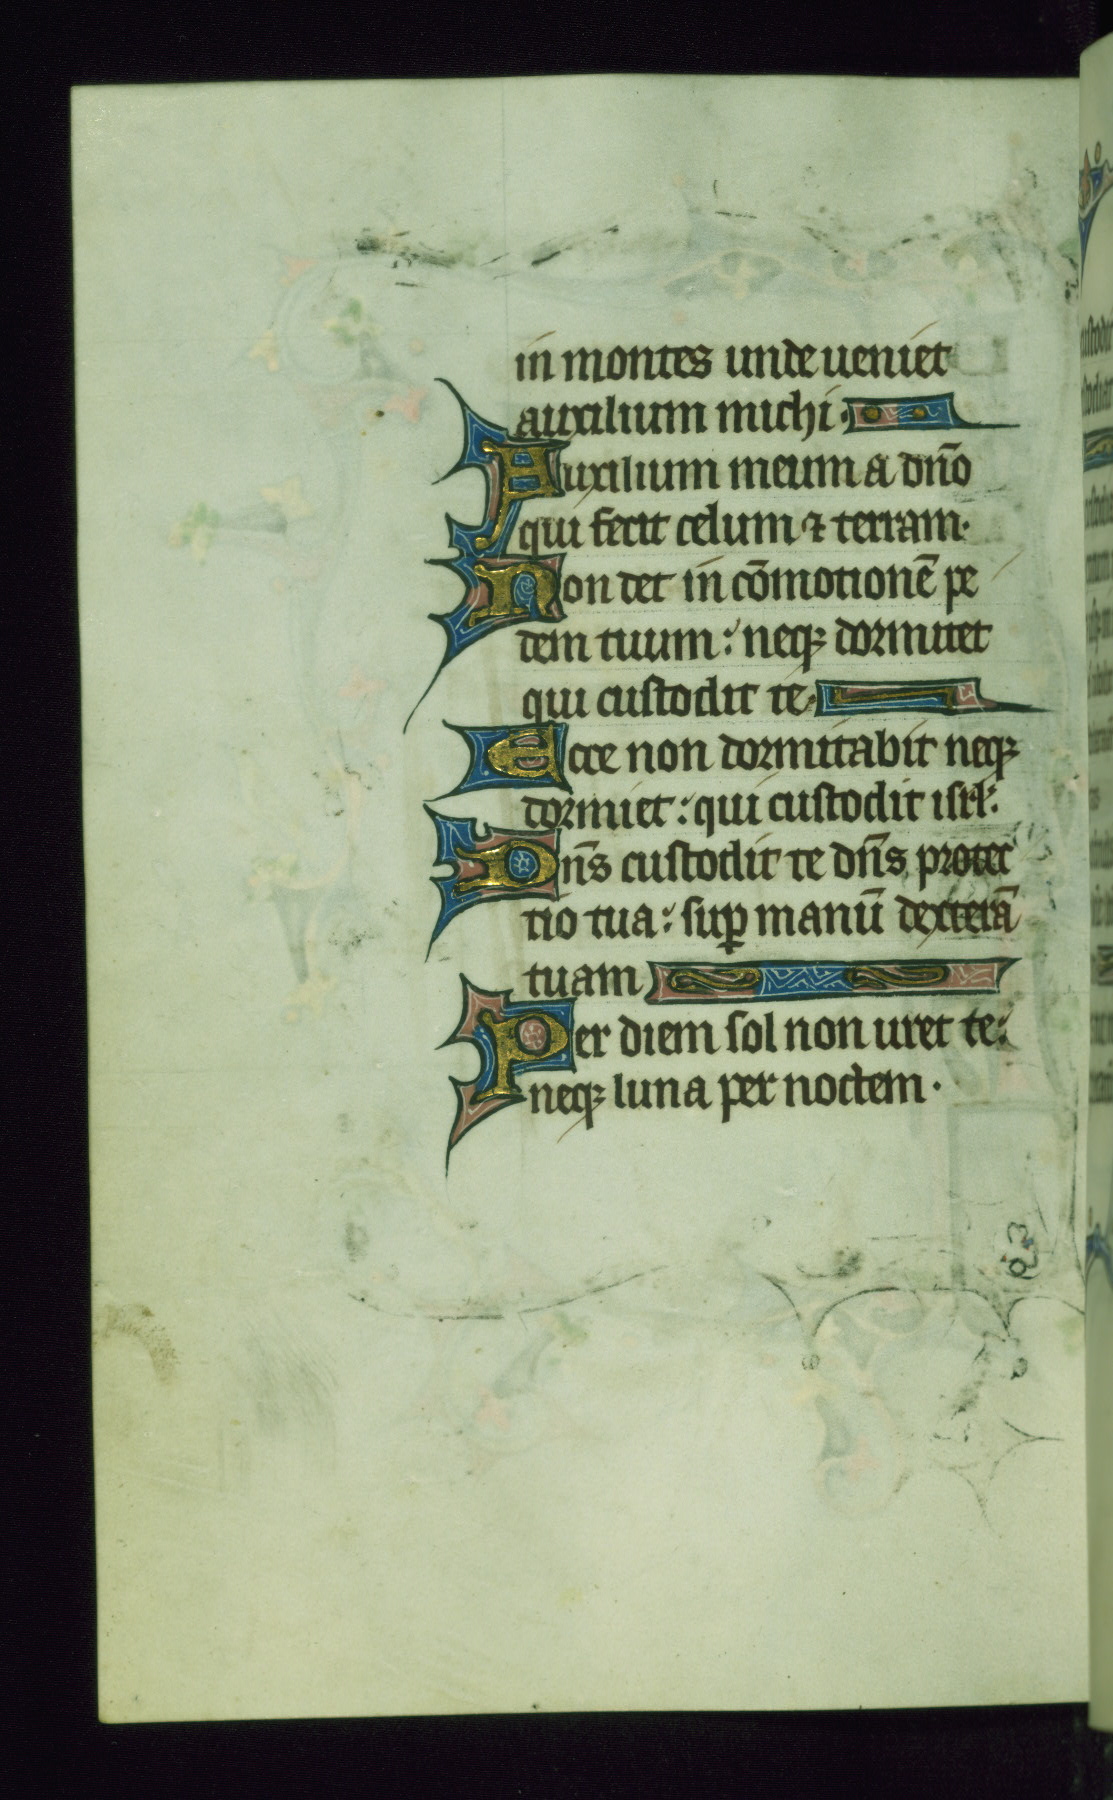 in montes unde ueniet
auxilium michi·
Auxilium meum a dn̄o
qui fecit celum ⁊ terram·
Non det in cōmotionē pe
dem tuum: neqꝫ dormitet
qui custodit te·
Ecce non dormitabit neqꝫ
dormiet: qui custodit isrl:
Dn̄s custodit te dn̄s protec
tio tua: suꝑ manū dexterā
tuam
Per diem sol non uret te:
neqꝫ luna per noctem·